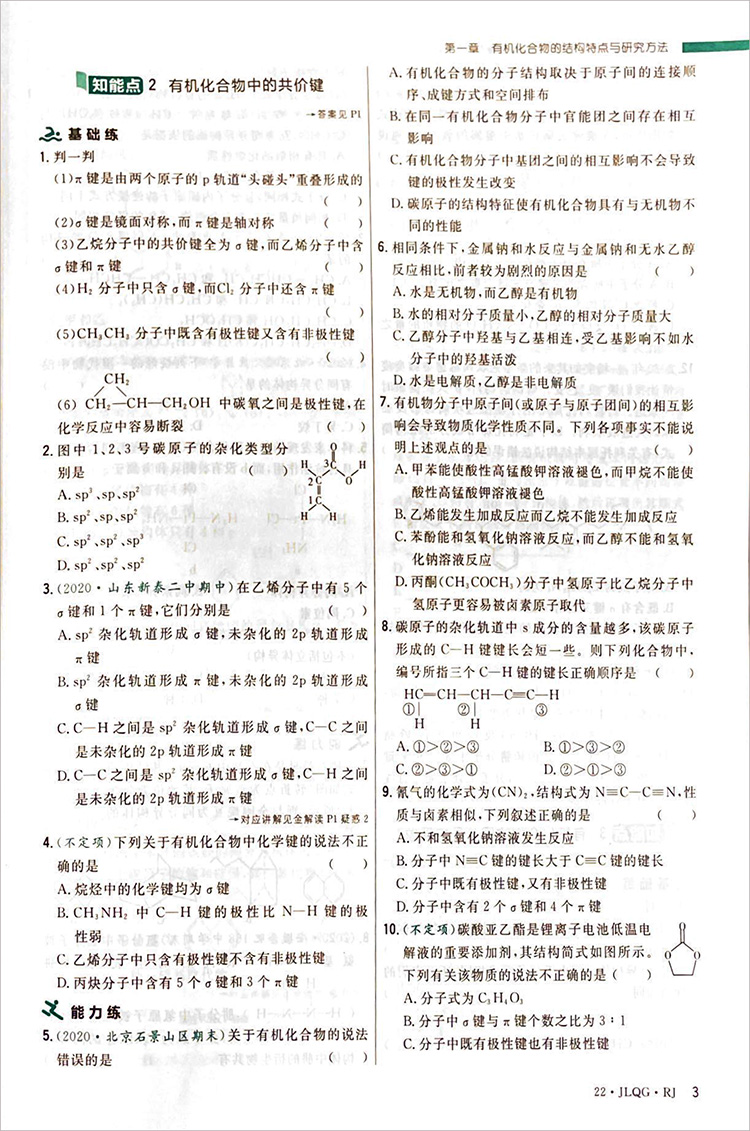 第一章 有机化合物的结构特点与研究方法
知能点2 有机化合物中的共价键
→答案见P1
基础练
1.判一判
(1)π键是由两个原子的p轨道“头碰头”重叠形成的
( )
(2)σ键是镜面对称,而π键是轴对称 ( )
(3)乙烷分子中的共价键全为σ键,而乙烯分子中含
σ键和π键 ( )
(4)H₂分子中只含σ键,而Cl₂分子中还含π键
( )
(5)CH₃CH₃分子中既含有极性键又含有非极性键
( )
CH₂
(6) CH₂—CH—CH₂OH 中碳氧之间是极性键,在
化学反应中容易断裂 ( )
2.图中1、2、3号碳原子的杂化类型分
别是 ( )
H 3 O H
2 O
1C
H H
A.sp³、sp、sp²
B.sp²、sp、sp²
C.sp²、sp²、sp²
D.sp²、sp²、sp³
3.(2020·山东新泰二中期中)在乙烯分子中有5个
σ键和1个π键,它们分别是 ( )
A.sp²杂化轨道形成σ键,未杂化的2p轨道形成
π键
B.sp²杂化轨道形成π键,未杂化的2p轨道形成
σ键
C.C—H之间是sp²杂化轨道形成σ键,C—C之间
是未杂化的2p轨道形成π键
D.C—C之间是sp²杂化轨道形成σ键,C—H之间
是未杂化的2p轨道形成π键
→对应讲解见全解读P1疑惑2
4.(不定项)下列关于有机化合物中化学键的说法不正
确的是 ( )
A.烷烃中的化学键均为σ键
B.CH₃NH₂中C—H键的极性比N—H键的极
性弱
C.乙烯分子中只含有极性键不含有非极性键
D.丙炔分子中含有5个σ键和3个π键
能力练
5.(2020·北京石景山区期末)关于有机化合物的说法
错误的是 ( )
A.有机化合物的分子结构取决于原子间的连接顺
序、成键方式和空间排布
B.在同一有机化合物分子中官能团之间存在相互
影响
C.有机化合物分子中基团之间的相互影响不会导致
键的极性发生改变
D.碳原子的结构特征使有机化合物具有与无机物不
同的性能
6.相同条件下,金属钠和水反应与金属钠和无水乙醇
反应相比,前者较为剧烈的原因是 ( )
A.水是无机物,而乙醇是有机物
B.水的相对分子质量小,乙醇的相对分子质量大
C.乙醇分子中羟基与乙基相连,受乙基影响不如水
分子中的羟基活泼
D.水是电解质,乙醇是非电解质
7.有机物分子中原子间(或原子与原子团间)的相互影
响会导致物质化学性质不同。下列各项事实不能说
明上述观点的是 ( )
A.甲苯能使酸性高锰酸钾溶液褪色,而甲烷不能使
酸性高锰酸钾溶液褪色
B.乙烯能发生加成反应而乙烷不能发生加成反应
C.苯酚能和氢氧化钠溶液反应,而乙醇不能和氢氧
化钠溶液反应
D.丙酮(CH₃COCH₃)分子中氢原子比乙烷分子中
氢原子更容易被卤素原子取代
8.碳原子的杂化轨道中s成分的含量越多,该碳原子
形成的C—H键键长会短一些。则下列化合物中,
编号所指三个C—H键的键长正确顺序是 ( )
HC═CH—CH—C≡C—H
①| ②| ③
H H
A.①>②>③ B.①>③>②
C.②>③>① D.②>①>③
9.氰气的化学式为(CN)₂,结构式为N≡C—C≡N,性
质与卤素相似,下列叙述正确的是 ( )
A.不和氢氧化钠溶液发生反应
B.分子中N≡C键的键长大于C≡C键的键长
C.分子中既有极性键,又有非极性键
D.分子中含有2个σ键和4个π键
10.(不定项)碳酸亚乙酯是锂离子电池低温电
解液的重要添加剂,其结构简式如图所示。
下列有关该物质的说法不正确的是 ( )
O
O O
A.分子式为C₃H₄O₃
B.分子中σ键与π键个数之比为3∶1
C.分子中既有极性键也有非极性键
22·JLQG·RJ 3